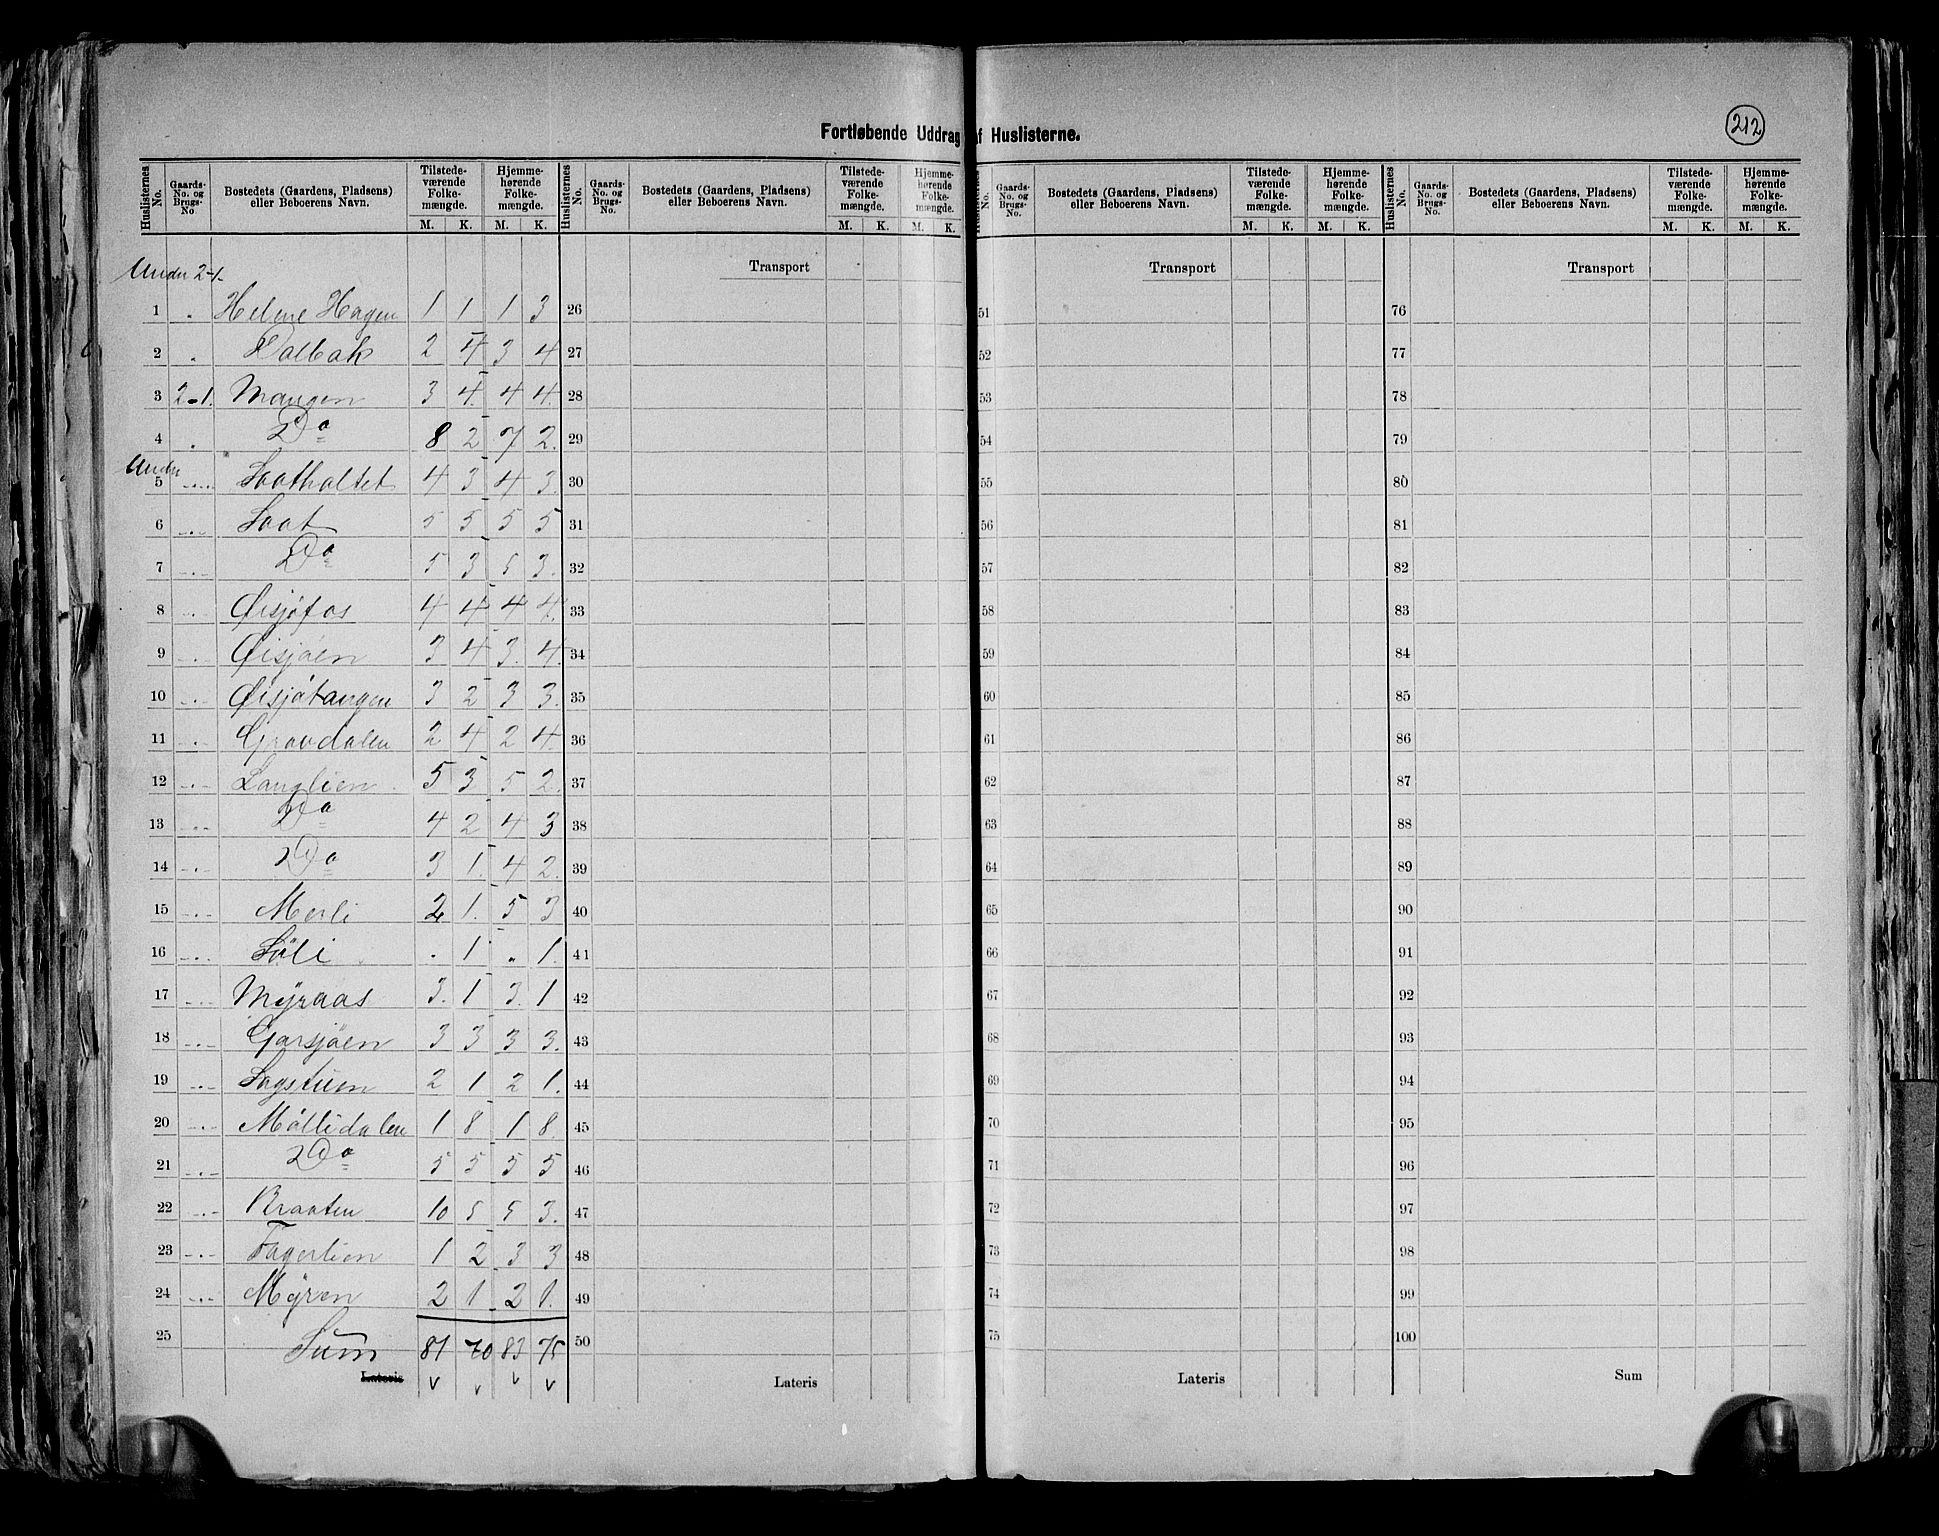 Fortløbende Uddrag af Huslisterne.
212
Huslisternes No. Gaards-No. og Brugs-No. Bostedets (Gaardens, Pladsens) eller Beboerens Navn. Tilstedeværende Folkemængde. Hjemmehørende Folkemængde.
M. K. M. K.
Huslisternes No. Gaards-No. og Brugs-No. Bostedets (Gaardens, Pladsens) eller Beboerens Navn. Tilstedeværende Folkemængde. Hjemmehørende Folkemængde.
M. K. M. K.
Huslisternes No. Gaards-No. og Brugs-No. Bostedets (Gaardens, Pladsens) eller Beboerens Navn. Tilstedeværende Folkemængde. Hjemmehørende Folkemængde.
M. K. M. K.
Huslisternes No. Gaards-No. og Brugs-No. Bostedets (Gaardens, Pladsens) eller Beboerens Navn. Tilstedeværende Folkemængde. Hjemmehørende Folkemængde.
M. K. M. K.
Under 2-1. Transport Transport Transport
1 Helene Hagen 1 1 1 3 26 51 76
2 Dalbak 2 4 3 4 27 52 77
3 2-1. Mangen 3 4. 4 4. 28 53 78
4 Do 8 2 7 2. 29 54 79
Under
5 Soothaltet 4 3 4 3. 30 55 80
6 Soot 5 5 5 5 31 56 81
7 Do 5 3 5 3. 32 57 82
8 Øisjøfos 4 4 4 4. 33 58 83
9 Øisjøen 3 4 3. 4. 34 59 84
10 Øisjøtangen 3 2 3 3. 35 60 85
11 Gravdalen 2 4 2 4. 36 61 86
12 Langlien 5 3 5 2. 37 62 87
13 Do 4 2 4 3 38 63 88
14 Do 3 1. 4 2. 39 64 89
15 Merli 2 1. 5 3 40 65 90
16 Søli . 1 „ 1. 41 66 91
17 Myraas 3. 1 3. 1 42 67 92
18 Garsjøen 3 3 3 3. 43 68 93
19 Sagstuen 2 1 2 1. 44 69 94
20 Møllidalen 1 8 1 8. 45 70 95
21 Do 5 5 5 5 46 71 96
22 Braaten 10 5 5 3. 47 72 97
23 Fagerlien 1 2 3 3 48 73 98
24 Myren 2 1 2 1. 49 74 99
25 Sum 81 70 83 75 50 75 100
Lateris v v v v Lateris Lateris Sum